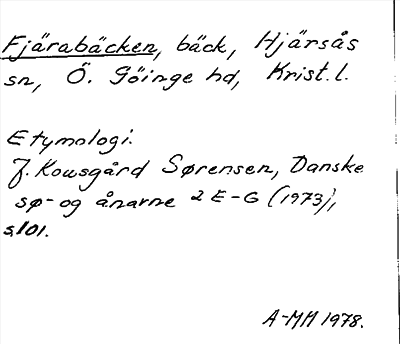 Fjärabäcken, bäck, Hjärsås
sn, Ö. Göinge hd, Krist. l.
Etymologi.
J. Kousgård Sørensen, Danske
sø- og ånavne 2 E-G (1973),
s. 101.
A-MM 1978.